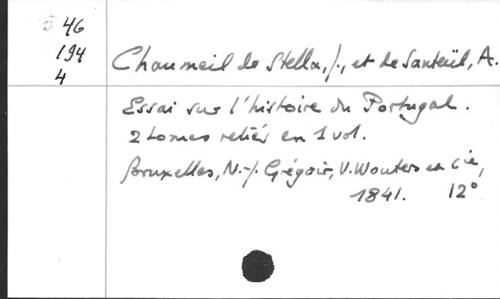 46
194
4
Chaumeil de Stella, J., et de Santeül, A.
Essai sur l'histoire du Portugal.
2 tomes reliés en 1 vol.
Bruxelles, N.-J. Grégoir, V. Wouters en Cie,
1841. 12°